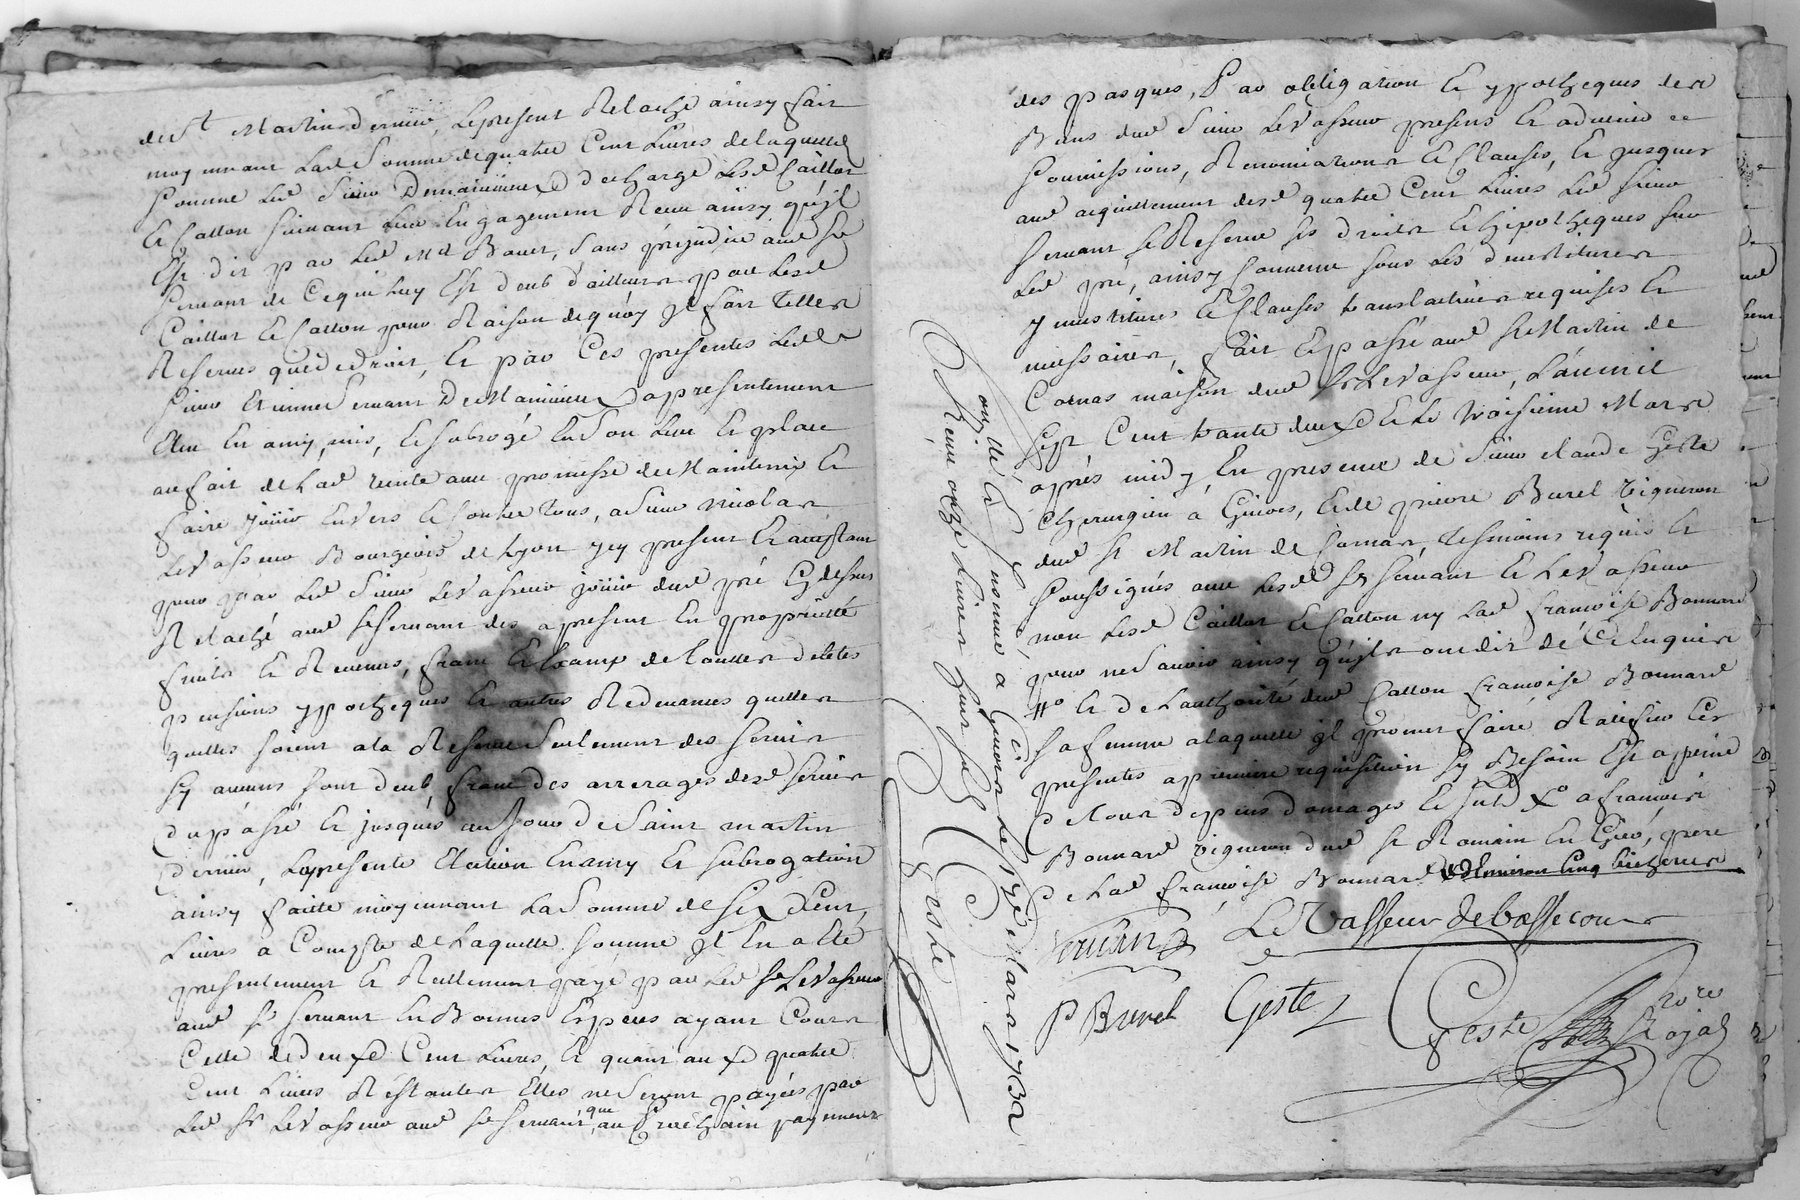 de St Martin dernier, le present Relaché ainsy fait
moyennant lad somme de quatre Cent Livres de laquelle
somme led Sieur Demainvieux decharge lesd Caillot
Et Catton suivant leur Engagement Reçu ainsy qu'il
Est dit par led Mt Bonet, sans prejudice aud Sr
Servant de Ce qui luy Est deub d'ailleurs par lesd
Caillot Et Catton pour Raison de quoy jl fait telles
Reserves que de droit, Et par Ces presentes led
Sieur Etienne Servant Demainvieux a presentement
Eleu En amy, mis, Et subrogé En son lieu Et place
au fait de lad vente avec promesse de Maintenir Et
faire jouir Envers Et Contre tous, a Sieur Nicolas
LeVasseur Bourgeois de Lyon jcy present Et acceptant
pour par led Sieur LeVasseur jouir dud pré Cy dessus
Relaché aud Sr Servant des a present En proprietté
fruits Et Revenus, franc Et Exempt de touttes debtes
pensions ypotheques Et autres Redevances quelles
quelles soient a la Reserve Seulement des Servis
sy aucuns sont deub, franc des arrerages desd servis
du passé Et jusques au jour de Saint martin
dernier, la presente Election En amy Et subrogation
ainsy faitte moyennant la Somme de Six Cent
Livres a Compte de laquelle somme jl En a Eté
presentement Et Reellement payé par led Sr LeVasseur
aud Sr Servant En Bonnes Especes ayant Cours
Celle de deux Cent Livres, Et quant aux quatre
Cent Livres Restantes Elles ne seront payées par
led Sr LeVasseur aud Sr Servant que au Prochain payement
des pasques, Par obligation Et ypotheques des
Biens dud Sieur LeVasseur presens Et advenir
soumissions, Renonciations Et Clauses, Et jusques
aud acquittement desd quatre Cent Livres led Sieur
Servant se Reserve ses droits Et hipotheques sur
led pré, ainsy Convenu sous les devestitures
ynvestitures Et Clauses translatives requises Et
necessaires, fait Et passé aud St Martin de
Cornas maison dud Sr LeVasseur, L'an mil
sept Cent trente deux Et Le troisieme Mars
après midy, En presence de Sieur Claude Geste
Chirurgien a Givors, Et de pierre Burel vigneron
dud St Martin de Cornas, tesmoins requis Et
soussignés avec lesd Srs Servant Et LeVasseur
non lesd Caillot Et Catton ny lad françoise Bonnard
pour ne savoir ainsy qu'jls ont dit de Ce Enquis
Et de l'authorité dud Catton françoise Bonnard
sa femme a laquelle jl promet faire Ratifier Ces
presentes a premiere requisition sy Besoin Est a peine
de tous depens domages Et
a françois
Bonnard vigneron dud St Romain En Gier, pere
de lad françoise Bonnard
Servant LeVasseur de bassecour
P Burel Geste
Geste Nore Royal
Con llé Et Insinué a Givors Le 13e Mars 1732
Reçeu onze Livres
Geste